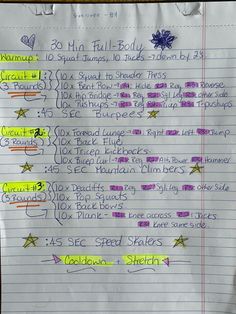 30 Min Full-Body
Warmup: 10 Squat Jumps, 10 Jacks → down by 2's
Circuit #1: 10x Squat to Shoulder Press
(3 Rounds) 10x Bent Row Wide Reg Reverse
10x Hip Bridge Reg Sgl Leg Other Side
10x Pushups Reg T-pushups
:45 SEC Burpees
Circuit #2: 10x Forward Lunge Right Left Jump
(3 Rounds) 10x Back Flyer
10x Tricep Kickbacks
10x Bicep Curl Reg Alt Power Hammer
:45 SEC Mountain Climbers
Circuit #3: 10x Deadlifts Reg Sgl Leg other side
(3 Rounds) 10x Pop Squats
10x Back Bows
10x Plank Knee across Jacks
Knee same side
:45 SEC Speed Skaters
Cooldown + Stretch